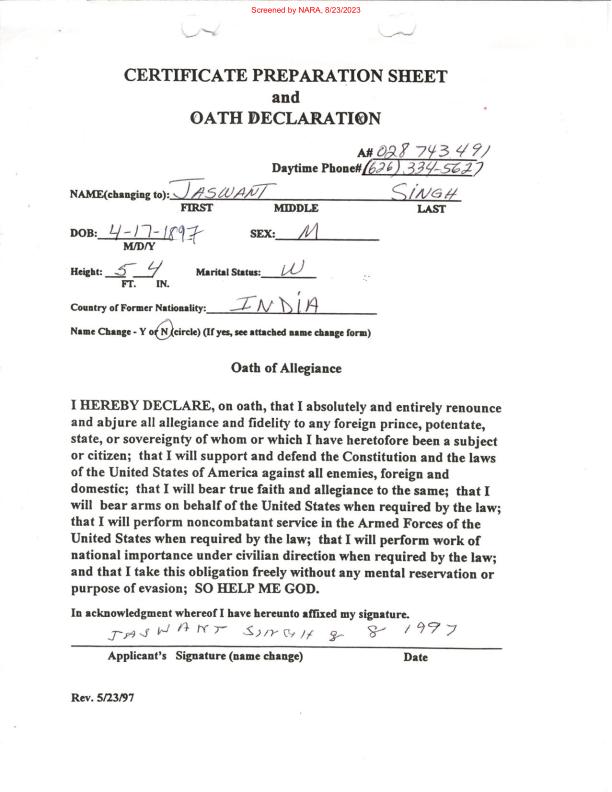 Screened by NARA, 8/23/2023
CERTIFICATE PREPARATION SHEET
and
OATH DECLARATION
A# 028 743 491
Daytime Phone# (626) 334-5627
NAME(changing to): JASWANT SINGH
FIRST MIDDLE LAST
DOB: 4-17-1897 SEX: M
M/D/Y
Height: 5 4 Marital Status: W
FT. IN.
Country of Former Nationality: INDIA
Name Change - Y or N (circle) (If yes, see attached name change form)
Oath of Allegiance
I HEREBY DECLARE, on oath, that I absolutely and entirely renounce
and abjure all allegiance and fidelity to any foreign prince, potentate,
state, or sovereignty of whom or which I have heretofore been a subject
or citizen; that I will support and defend the Constitution and the laws
of the United States of America against all enemies, foreign and
domestic; that I will bear true faith and allegiance to the same; that I
will bear arms on behalf of the United States when required by the law;
that I will perform noncombatant service in the Armed Forces of the
United States when required by the law; that I will perform work of
national importance under civilian direction when required by the law;
and that I take this obligation freely without any mental reservation or
purpose of evasion; SO HELP ME GOD.
In acknowledgment whereof I have hereunto affixed my signature.
JASWANT SINGH 8 8 1997
Applicant's Signature (name change) Date
Rev. 5/23/97